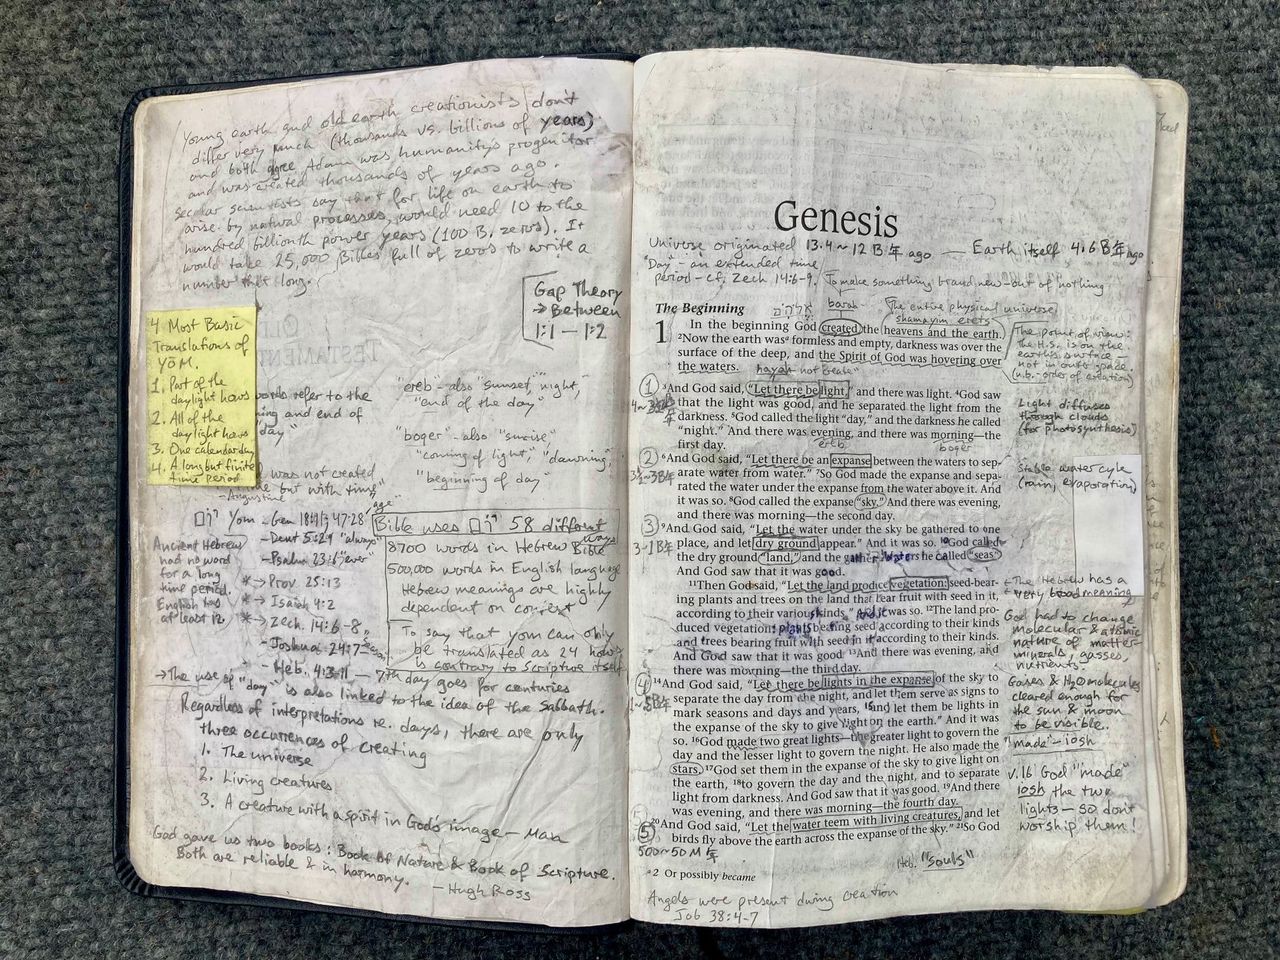 Young earth and old earth creationists don't
differ very much (thousands vs. billions of years)
and both agree Adam was humanity's progenitor
and was created thousands of years ago.
Secular scientists say that for life on earth to
arise by natural processes, would need 10 to the
hundred billionth power years (100 B. zeros). It
would take 25,000 Bibles full of zeros to write a
number that long.
Gap Theory
→ Between
1:1 – 1:2
4 Most Basic
Translations of
YŌM.
1. Part of the
daylight hours
2. All of the
daylight hours
3. One calendar day
4. A long but finite
time period
words refer to the
and end of
day"
"ereb" - also "sunset," "night,"
"end of the day"
"boger" - also "sunrise",
"coming of light," "dawning,"
"beginning of day
was not created
but with time"
- Augustine
Yom - Gen 47:28 "age"
- Deut 5:29 "always"
- Psalm 23:6 "ever"
* → Prov 25:13
→ Isaiah 4:2
* → Zech. 14:6-8
- Joshua 24:7
- Heb. 4:3-11 — 7th day goes for centuries
Ancient Hebrew
had no word
for a long
time period.
English has
at least 12.
Bible uses יום 58 different ways
8700 words in Hebrew Bible
500,000 words in English language
Hebrew meanings are highly
dependent on context
To say that yom can only
be translated as 24 hours
is contrary to Scripture itself
→ The use of "day" is also linked to the idea of the Sabbath.
Regardless of interpretations re. days, there are only
three occurrences of creating
1. The universe
2. Living creatures
3. A creature with a spirit in God's image – Man
God gave us two books: Book of Nature & Book of Scripture.
Both are reliable & in harmony.
— Hugh Ross
Genesis
Universe originated 13.4 ~ 12 B年 ago — Earth itself 4.6 B年 ago
"Day" - an extended time
period - cf. Zech 14:6-9.
To make something brand new - out of nothing
barah
The entire physical universe
shamayim erets
The Beginning
1 In the beginning God created the heavens and the earth.
²Now the earth wasᵃ formless and empty, darkness was over the
surface of the deep, and the Spirit of God was hovering over
the waters.
hayah not "create"
The point of view:
the H.S. is on the
earth's surface -
not in outer space.
(n.b. - order of creation)
① ³And God said, "Let there be light," and there was light. ⁴God saw
that the light was good, and he separated the light from the
darkness. ⁵God called the light "day," and the darkness he called
"night." And there was evening, and there was morning—the
first day.
ereb
boger
Light diffuses
through clouds
(for photosynthesis)
② ⁶And God said, "Let there be an expanse between the waters to sep-
arate water from water." ⁷So God made the expanse and sepa-
rated the water under the expanse from the water above it. And
it was so. ⁸God called the expanse "sky." And there was evening,
and there was morning—the second day.
Stable water cycle
(rain, evaporation)
③ ⁹And God said, "Let the water under the sky be gathered to one
place, and let dry ground appear." And it was so. ¹⁰God called
the dry ground "land," and the gathered waters he called "seas."
And God saw that it was good.
3-1 B年
¹¹Then God said, "Let the land produce vegetation: seed-bear-
ing plants and trees on the land that bear fruit with seed in it,
according to their various kinds." And it was so. ¹²The land pro-
duced vegetation: plants bearing seed according to their kinds
and trees bearing fruit with seed in it according to their kinds.
And God saw that it was good. ¹³And there was evening, and
there was morning—the third day.
The Hebrew has a
very broad meaning
God had to change
molecular & atomic
nature of matter -
minerals, gasses,
nutrients.
④ ¹⁴And God said, "Let there be lights in the expanse of the sky to
separate the day from the night, and let them serve as signs to
mark seasons and days and years, ¹⁵and let them be lights in
the expanse of the sky to give light on the earth." And it was
so. ¹⁶God made two great lights—the greater light to govern the
day and the lesser light to govern the night. He also made the
stars. ¹⁷God set them in the expanse of the sky to give light on
the earth, ¹⁸to govern the day and the night, and to separate
light from darkness. And God saw that it was good. ¹⁹And there
was evening, and there was morning—the fourth day.
Gases & H₂O molecules
cleared enough for
the sun & moon
to be visible.
"made" - iosh
v.16 God "made"
iosh the two
lights - so don't
worship them!
⑤ ²⁰And God said, "Let the water teem with living creatures, and let
birds fly above the earth across the expanse of the sky." ²¹So God
500~50 M年
Heb. "souls"
ᵃ2 Or possibly became
Angels were present during creation
Job 38:4-7